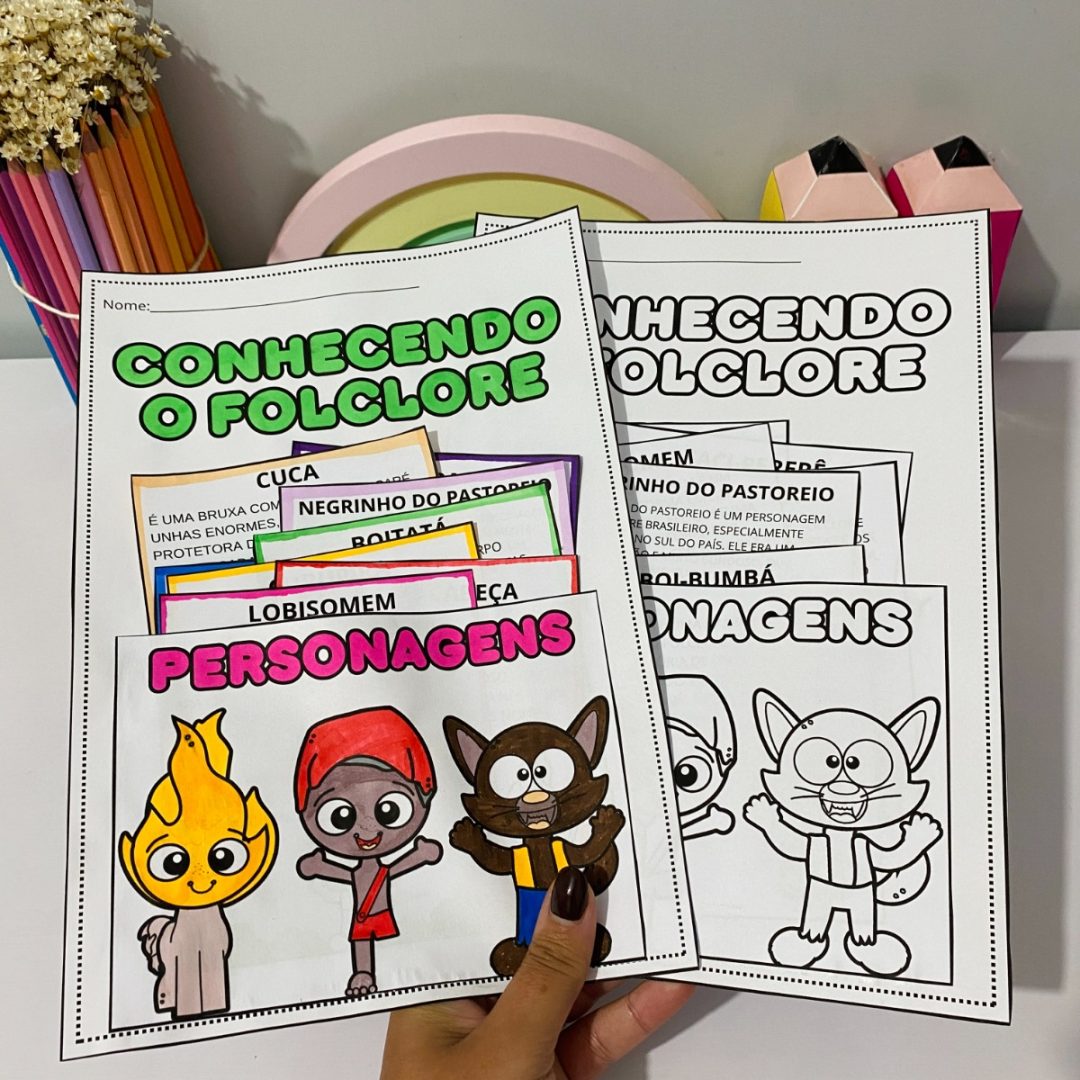 Nome:
CONHECENDO
O FOLCLORE
CUCA
É UMA BRUXA COM
UNHAS ENORMES,
PROTETORA
NEGRINHO DO PASTOREIO
BOITATÁ
RPO
EÇA
LOBISOMEM
PERSONAGENS
NHECENDO
FOLCLORE
OMEM
RINHO DO PASTOREIO
DO PASTOREIO É UM PERSONAGEM
RE BRASILEIRO, ESPECIALMENTE
NO SUL DO PAÍS. ELE ERA UM
OS
BOI-BUMBÁ
ONAGENS